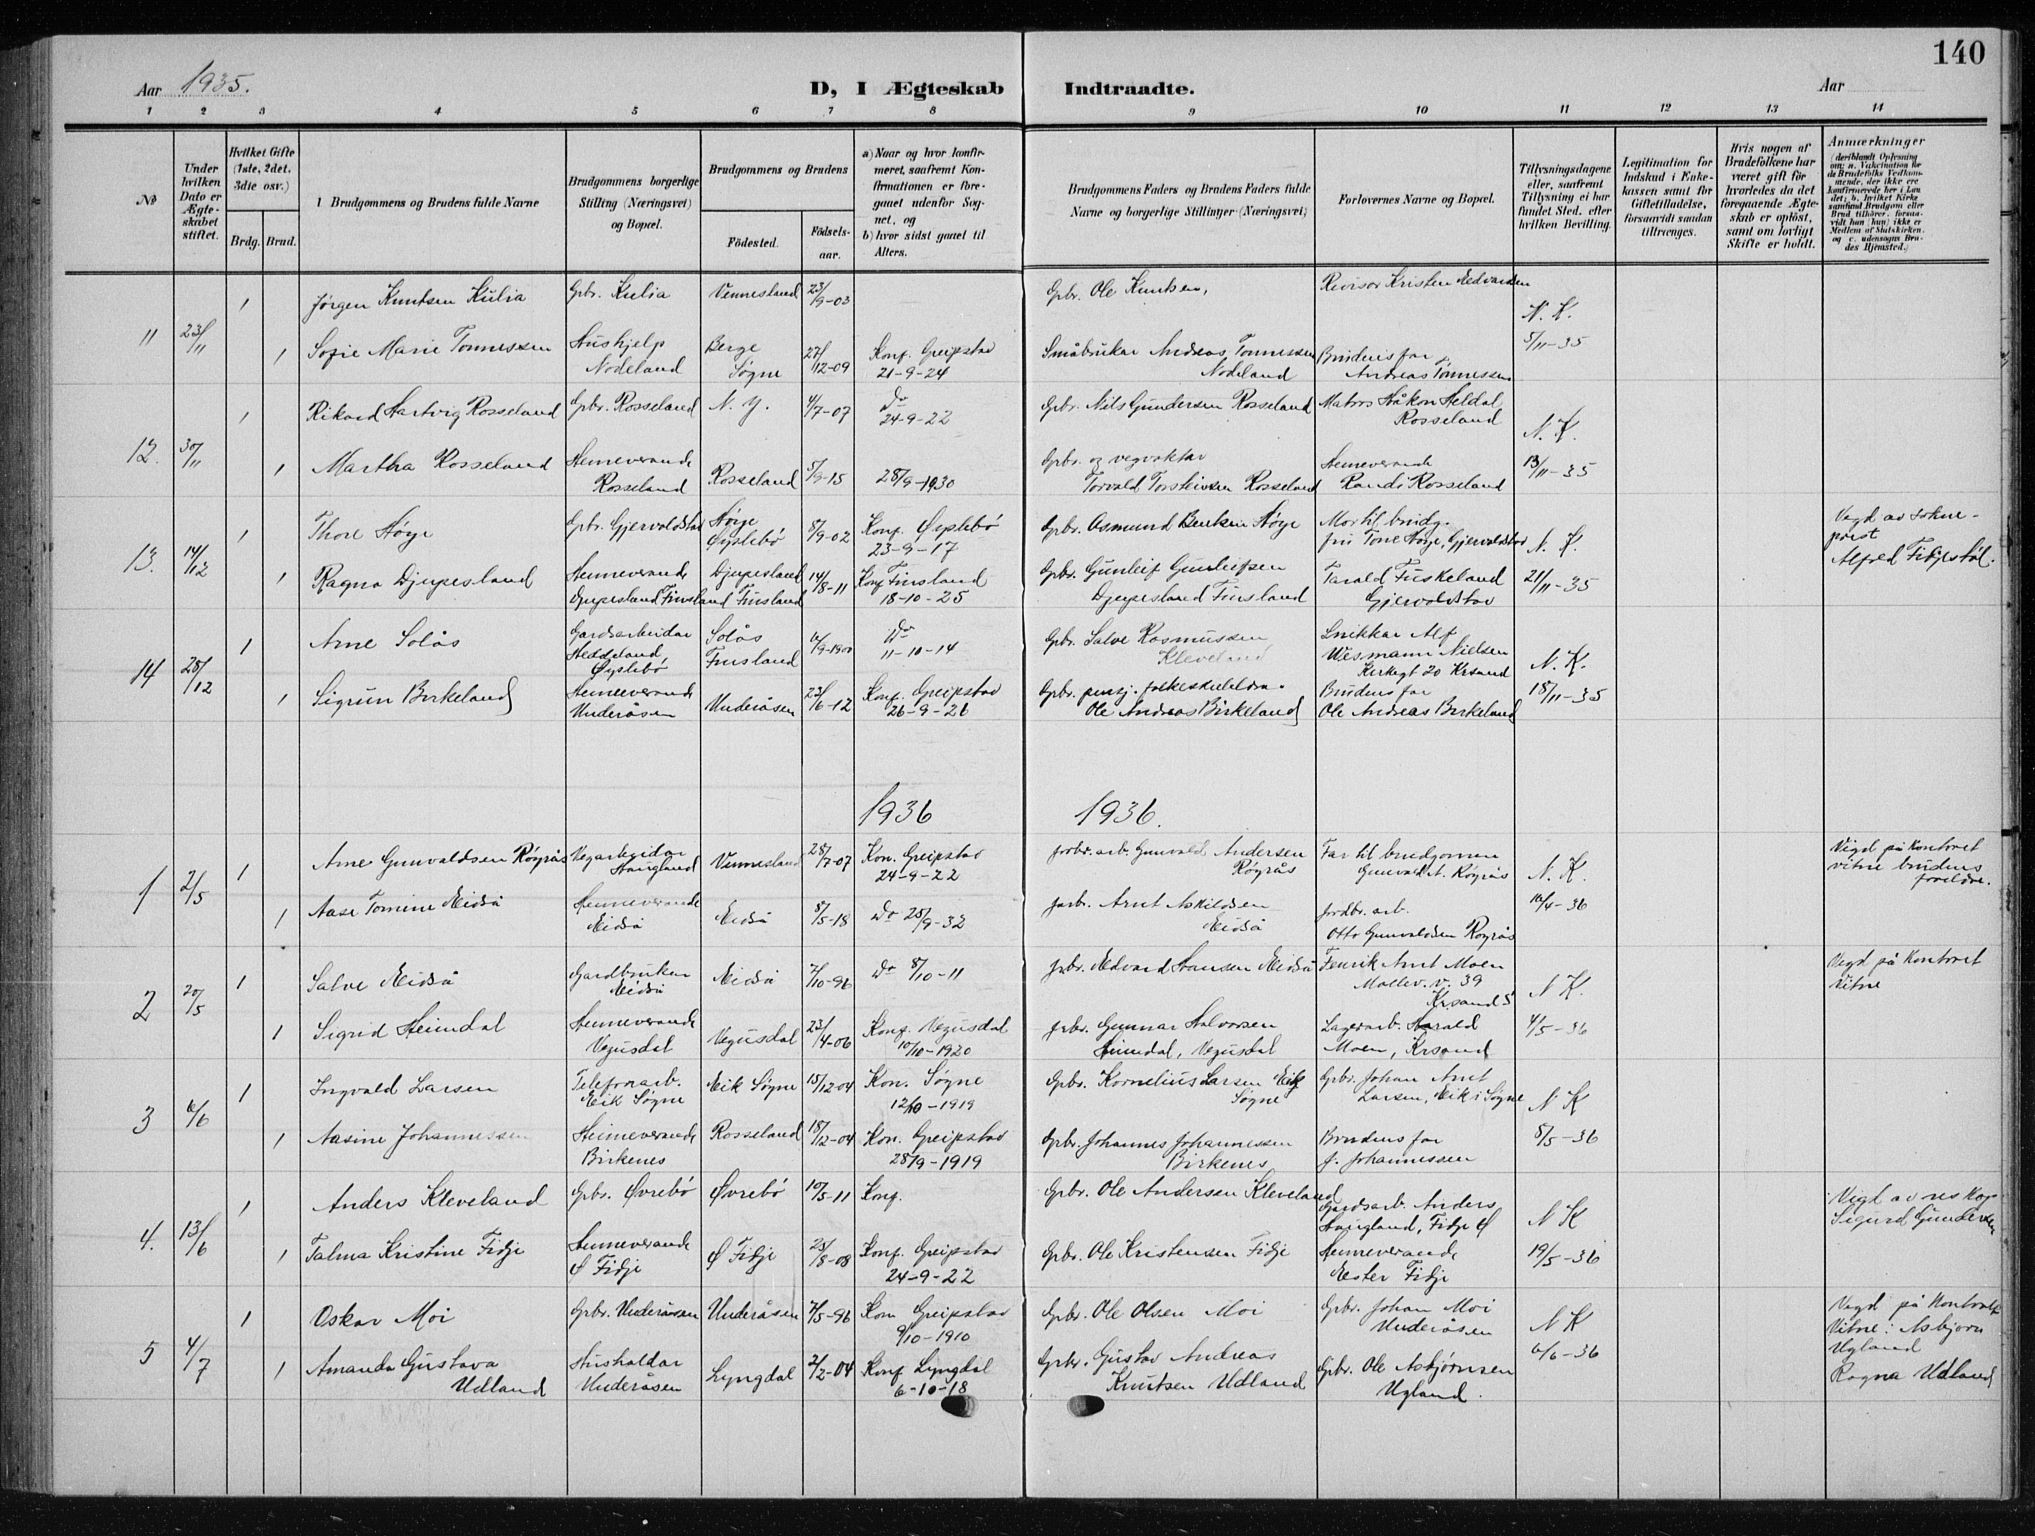 140
Aar 1935.
D, I Ægteskab Indtraadte.
Aar
1 2 3 4 5 6 7 8 9 10 11 12 13 14
No
Under hvilken Dato er Ægteskabet stiftet.
Hvilket Gifte (1ste, 2det, 3die osv.)
Brdg. Brud.
Brudgommens og Brudens fulde Navne
Brudgommens borgerlige Stilling (Næringsvei) og Bopæl.
Brudgommens og Brudens
Födested. Födsels-aar.
a) Naar og hvor konfirmeret, saafremt Konfirmationen er foregaaet udenfor Sognet, og
b) hvor sidst gaaet til Alters.
Brudgommens Faders og Brudens Faders fulde Navne og borgerlige Stillinger (Næringsvei)
Forlovernes Navne og Bopæl.
Tillysningsdagene eller, saafremt Tillysning ei har fundet Sted, efter hvilken Bevilling.
Legitimation for Indskud i Enkekassen samt for Giftetilladelse, forsaavidt saadan tiltrænges.
Hvis nogen af Brudefolkene har været gift før hvorledes da det foregaaende Ægteskab er opløst, samt om lovligt Skifte er holdt.
Anmærkninger
11 23/11
1 Jørgen Knutsen Kulia Gbr. Kulia Vennesland 23/9-03 Gbr. Ole Knutsen, Revisor Kristen Aedvardsen N. K.
1 Sofie Marie Tønnessen Hushjelp Nodeland Berge Søgne 27/12-09 Konf. Greipstad 21-9-24 Småbrukar Andreas Tønnessen Nodeland Brudens far Andreas Tønnessen 5/11-35
12. 30/11
1 Rikard Hartvig Rosseland Gbr. Rosseland N. Y. 4/7-07 Do 24-9-22 Gbr. Nils Gundersen Rosseland Matros Håkon Heldal Rosseland N. K.
1 Martha Rosseland Heimeverande Rosseland Rosseland 5/9-15 28/9-1930 Gbr. og vegvaktar Torvald Torkelsen Rosseland Heimeverande Randi Rosseland 13/11-35
13. 14/12
1 Thore Støye Gbr. Gjervoldstad Støye Øyslebø 8/9-02 Konf. Øyslebø 23-9-17 Gbr. Osmund Bentsen Støye Mor til brudg. fru Tone Støye, Gjervoldstad N. K. Vegd av sokneprest Alfred Fidjestøl.
1 Ragna Djupesland Heimeverande Djupesland Finsland Djupesland Finsland 14/8-11 Konf Finsland 18-10-25 Gbr. Gunleif Gunleifsen Djupesland Finsland Tarald Fuskeland Gjervoldstad 21/11-35
14 28/12
1 Arne Solås Gardsarbeidar Heddeland, Øyslebø Solås Finsland 6/9-1900 Do 11-10-14 Gbr. Salve Rasmussen Kleveland Snikkar Alf Wesmann Nielsen Kirkegt 20 Krsand N. K.
1 Sigrun Birkeland Heimeverande Underåsen Underåsen 23/6-12 Konf. Greipstad 26-9-26 Gbr. pensj. folkeskulelærar Ole Andreas Birkeland Brudens far Ole Andreas Birkeland 18/11-35
1936 1936.
1 2/5
1 Arne Gunvaldsen Røyrås Vegarbeidar Haugland Vennesland 28/7-07 Kon. Greipstad 24-9-22 jordbr. arb. Gunvald Andersen Røyrås Far til brudgomen Gunvald A. Røyrås N. K. Vigd på kontoret vitne brudens foreldre.
1 Aase Tomine Eidså Heimeverande Eidså Eidså 8/5-18 Do 25/9-32 jarb. Arnt Askildsen Eidså jordbr. arb. Otto Gunvaldsen Røyrås 16/4-36
2 20/5
1 Salve Eidså Gardbruker Eidså Eidså 7/10-96 Do 8/10-11 jrbr. Aedvard Hansen Eidså Fenrik Arnt Moen N K. Vegd på kontoret Vitne
1 Sigrid Heimdal Heimeverande Vegusdal Vegusdal 23/4-06 Konf. Vegusdal 10/10-1920 jrbr. Gunnar Halvorsen Heimdal, Vegusdal Lagerarb. Harald Moen, Krsand 4/5-36
3 6/6
1 Ingvald Larsen Telefonarb. Eik Søgne Eik Søgne 15/12-04 Kon. Søgne 12/10-1919 Gbr. Kornelius Larsen Eik Søgne Gbr. Johan Arnt Larsen, Eik i Søgne N K
1 Aasine Johannessen Heimeverande Birkenes Rosseland 18/12-04 Kon. Greipstad 28/9-1919 Gbr. Johannes Johannessen Birkenes Brudens far J. Johannessen 8/5-36
4. 13/6
1 Anders Kleveland Gbr. Øvrebø Øvrebø 10/5-11 Konf. Gbr. Ole Andersen Kleveland Gardsarb. Anders Haugland, Fidje Ø N K Vigd av res kap Sigurd Gundersen
1 Talma Kristine Fidje Heimeverande Ø Fidje Ø Fidje 25/8-08 Konf. Greipstad 24-9-22 Gbr. Ole Kristensen Fidje Heimeverande Ester Fidje 19/5-36
5 4/7
1 Oskar Moi Gbr. Underåsen Underåsen 7/5-96 Kon Greipstad 9/10-1910 Gbr. Ole Olsen Moi Gbr. Johan Moi Underåsen N K Vegd på kontoret Vitne: Asbjørn Ugland Ragna Udland
1 Amanda Gustava Udland Hushaldar Underåsen Lyngdal 2/2-04 Konf Lyngdal 6-10-18 Gbr. Gustav Andreas Knutsen Udland Gbr. Ole Asbjørnsen Ugland. 6/6-36